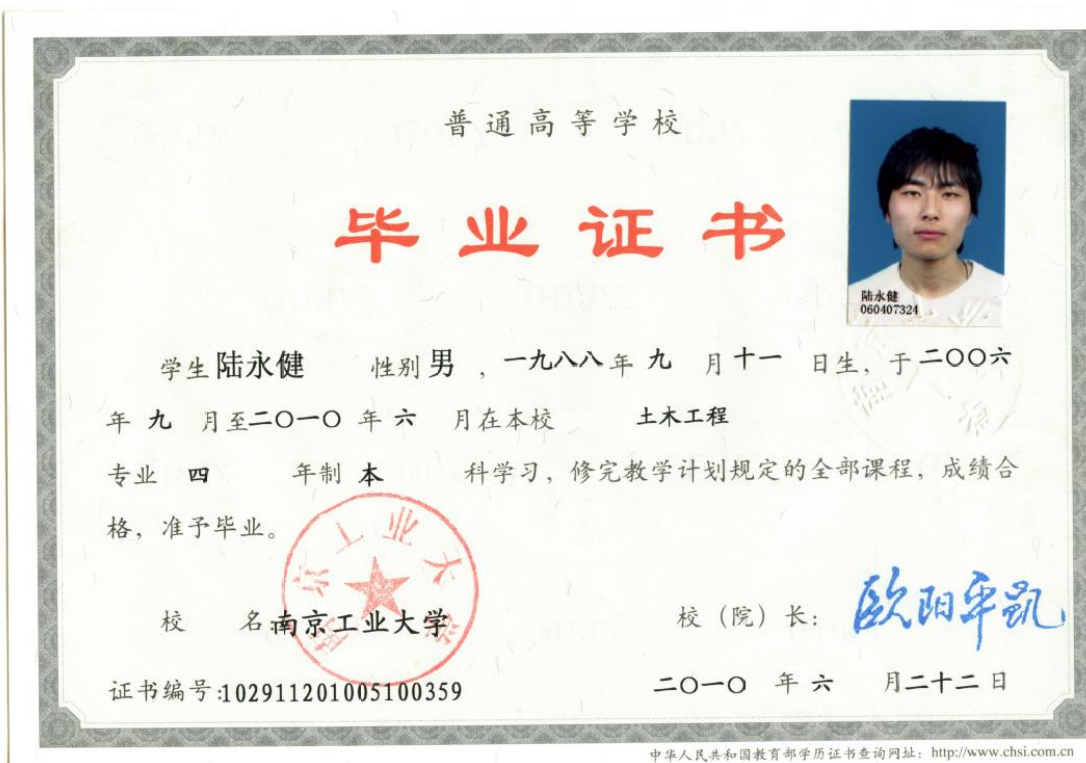 普通高等学校
毕业证书
陆永健
060407324
学生 陆永健 性别 男 ，一九八八 年 九 月 十一 日生，于 二〇〇六
年 九 月至 二〇一〇 年 六 月在本校 土木工程
专业 四 年制 本 科学习，修完教学计划规定的全部课程，成绩合
格，准予毕业。
南京工业大学
校 名 南京工业大学 校（院）长： 欧阳平凯
证书编号:102911201005100359 二〇一〇 年 六 月二十二日
中华人民共和国教育部学历证书查询网址：http://www.chsi.com.cn